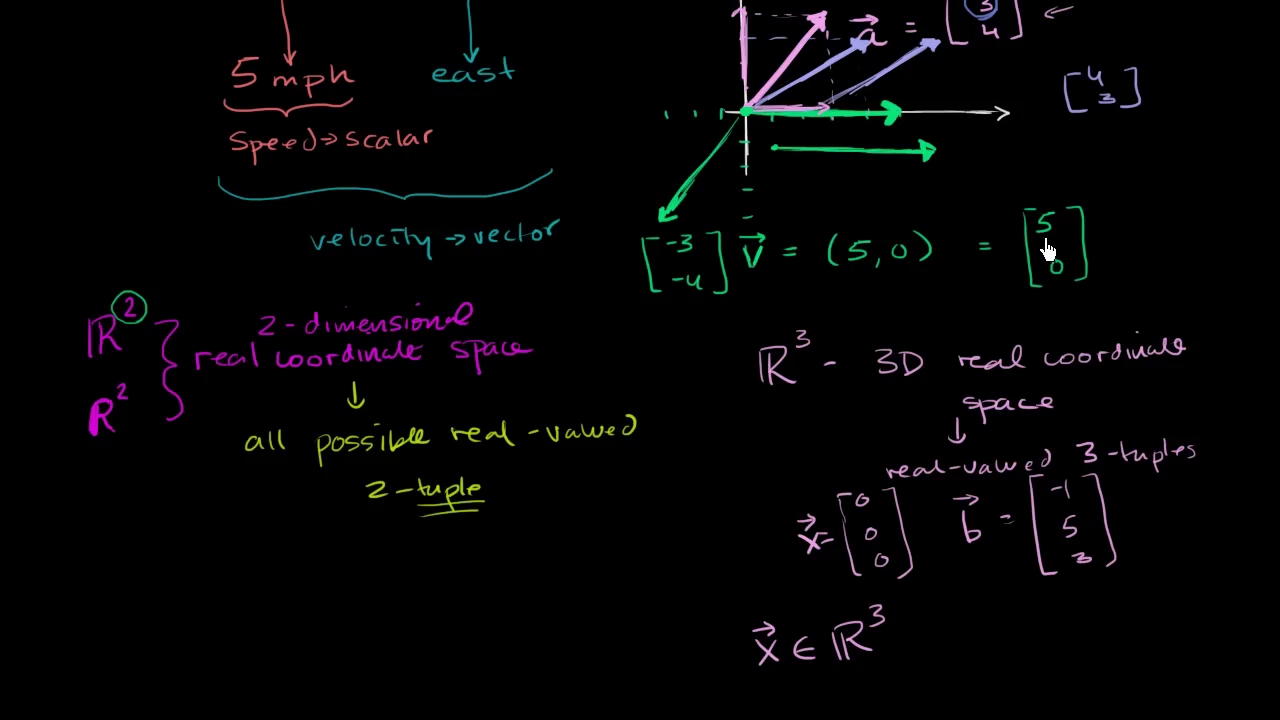 5 mph
east
speed → scalar
velocity → vector
a⃗ = [3
4] ←
[4
3]
[-3
-4]
v⃗ = (5,0) = [5
0]
ℝ²
R²
2-dimensional
real coordinate space
↓
all possible real-valued
2-tuple
ℝ³ - 3D real coordinate
space
↓
real-valued 3-tuples
x⃗ = [0
0
0]
b⃗ = [-1
5
3]
x⃗ ∈ ℝ³